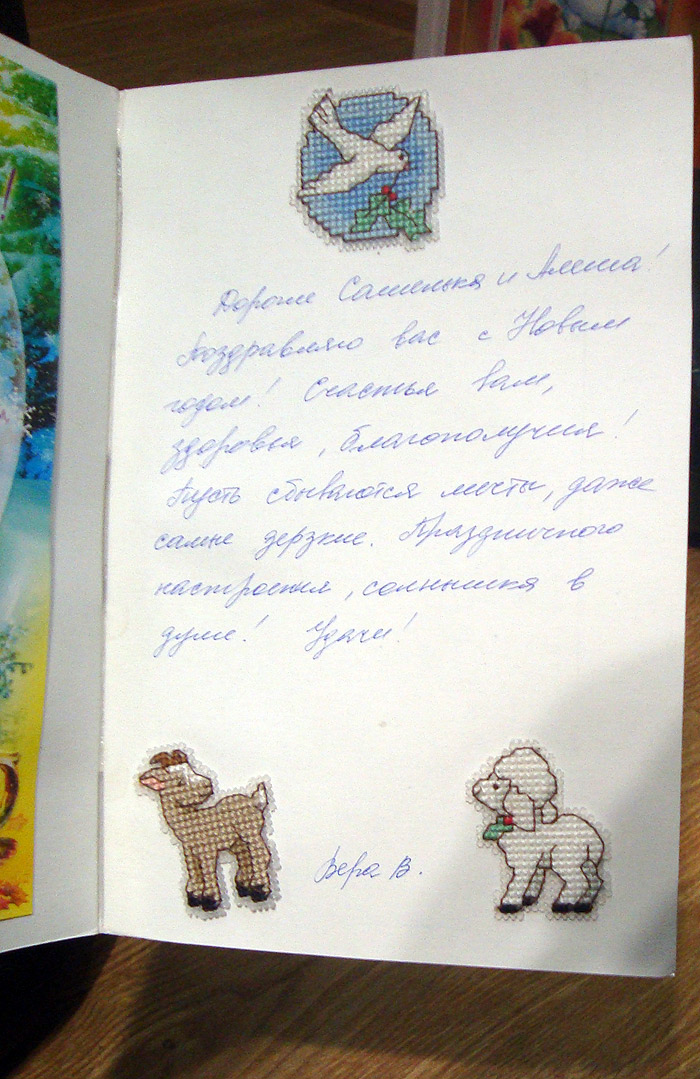 Дорогие Сашенька и Алеша!
Поздравляю вас с Новым
годом! Счастья вам,
здоровья, благополучия!
Пусть сбываются мечты, даже
самые дерзкие. Праздничного
настроения, солнышка в
душе! Удачи!
Вера В.